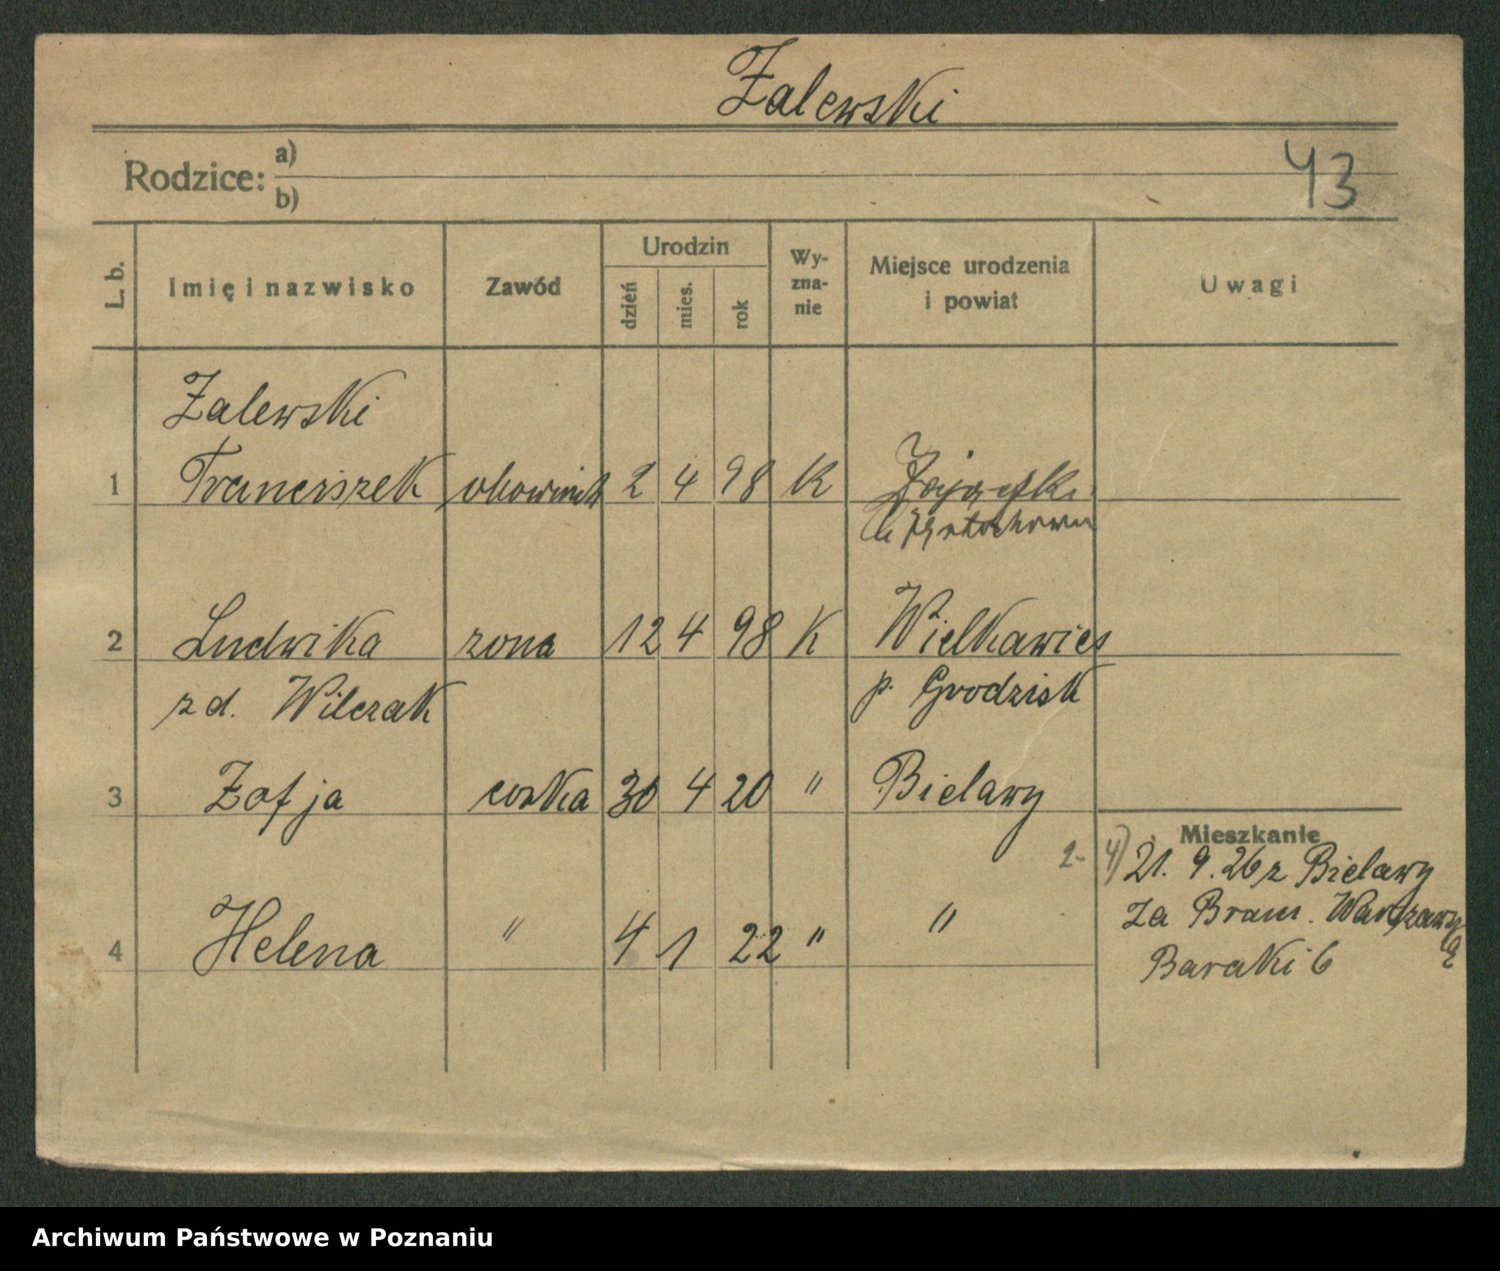 Zalewski
Rodzice: a)
b)
43
L. b.
Imię i nazwisko
Zawód
Urodzin
dzień
mies.
rok
Wy-
zna-
nie
Miejsce urodzenia
i powiat
Uwagi
Zalewski
1 Franciszek 2 4 98 K
2 Ludwika zona 12 4 98 K Wielkawieś
z d. Wilczak p. Grodzisk
3 Zofja corka 30 4 20 " Bielawy
Mieszkanie
4) 21. 9. 26 z Bielawy
za Bram. Warszawską
4 Helena " 4 1 22 " "
Baraki 6
Archiwum Państwowe w Poznaniu